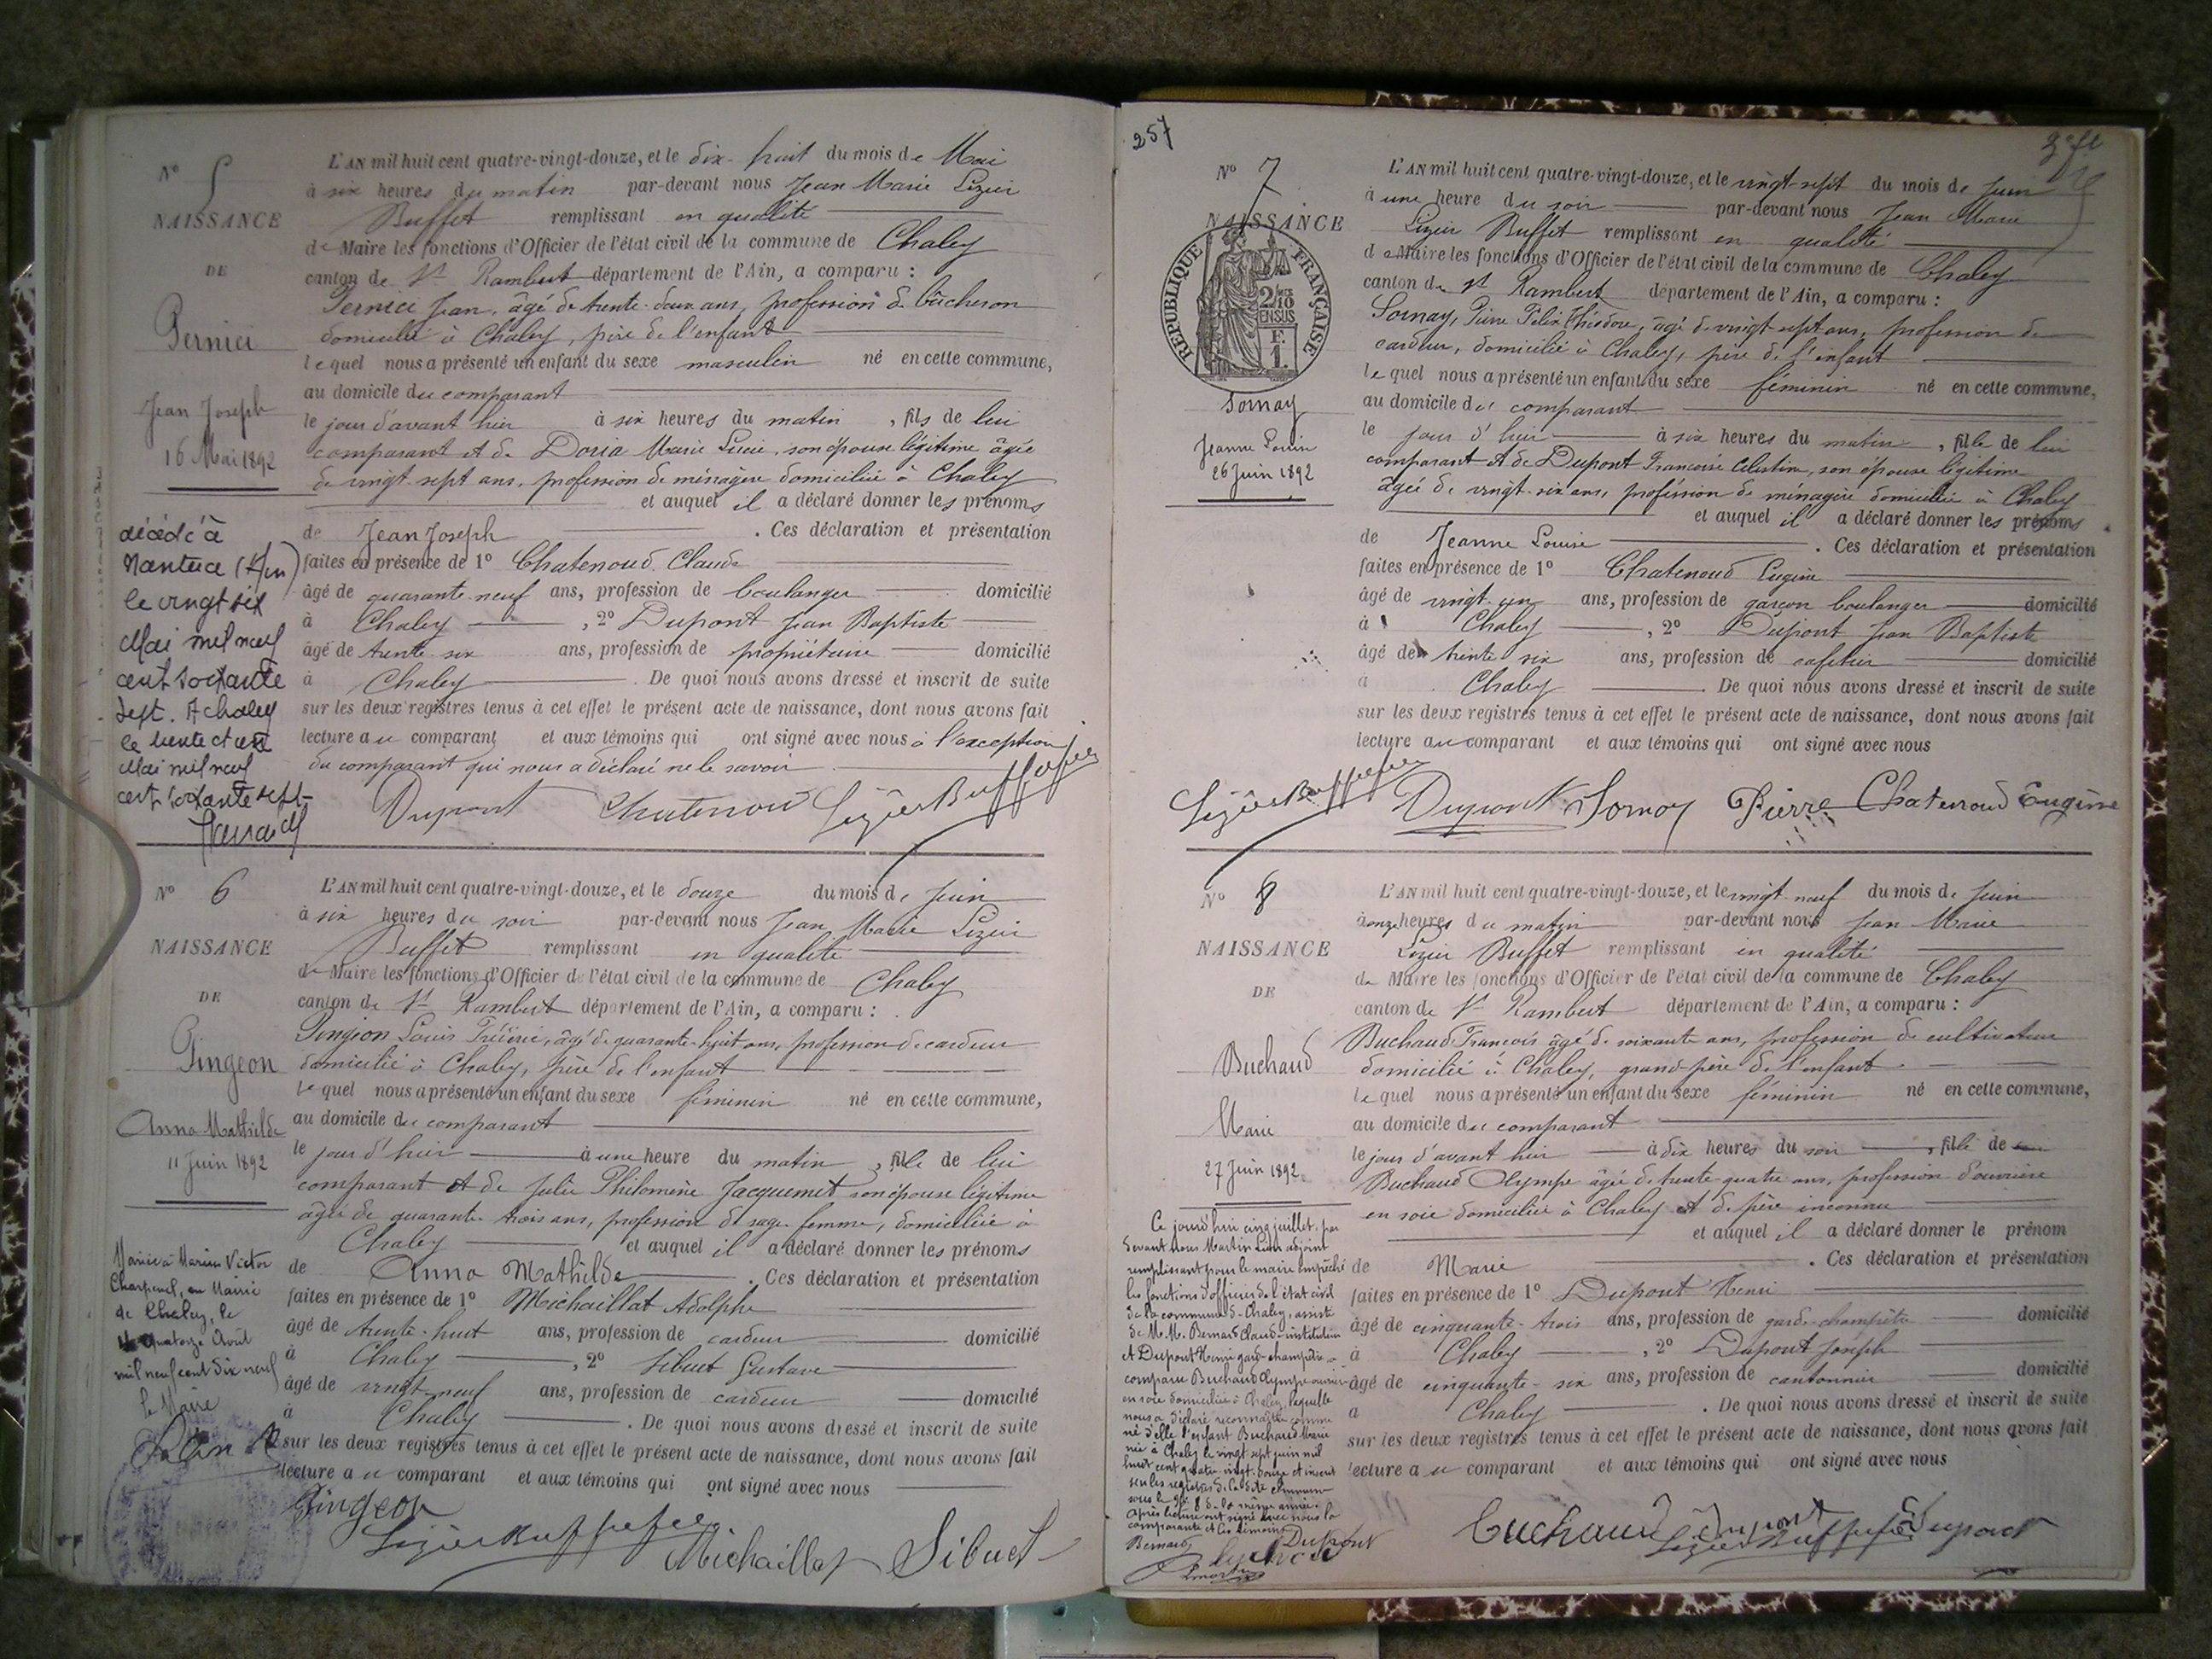 N° 5
NAISSANCE
DE
Pernici
Jean Joseph
16 Mai 1892
décédé à
Nantua (Ain)
le vingt six
Mai mil neuf
cent soixante
sept. A chaley
le trente et un
Mai mil neuf
cent soixante sept
L'AN mil huit cent quatre-vingt-douze, et le dix-huit du mois de Mai
à six heures du matin par-devant nous Jean Marie Lizier
Buffet remplissant en qualité
de Maire les fonctions d'Officier de l'état civil de la commune de Chaley
canton de St Rambert département de l'Ain, a comparu :
Pernici Jean, âgé de trente-deux ans, profession de bûcheron
domicilié à Chaley, père de l'enfant
lequel nous a présenté un enfant du sexe masculin né en cette commune,
au domicile du comparant
le jour d'avant hier à six heures du matin, fils de lui
comparant et de Doria Marie Lucie, son épouse légitime âgée
de vingt-sept ans, profession de ménagère domiciliée à Chaley
et auquel il a déclaré donner les prénoms
de Jean Joseph. Ces déclaration et présentation
faites en présence de 1° Chatenoud Claude
âgé de quarante-neuf ans, profession de boulanger domicilié
à Chaley, 2° Dupont Jean Baptiste
âgé de trente six ans, profession de propriétaire domicilié
à Chaley. De quoi nous avons dressé et inscrit de suite
sur les deux registres tenus à cet effet le présent acte de naissance, dont nous avons fait
lecture au comparant et aux témoins qui ont signé avec nous à l'exception
du comparant qui nous a déclaré ne le savoir
Dupont Chatenoud Lizier Buffet
N° 6
NAISSANCE
DE
Pingeon
Anna Mathilde
11 Juin 1892
Mariée à Marius Victor
Charpenel, en Mairie
de Chaley, le
quatorze Août
mil neuf cent dix neuf
le Maire
L'AN mil huit cent quatre-vingt-douze, et le douze du mois de Juin
à six heures du soir par-devant nous Jean Marie Lizier
Buffet remplissant en qualité
de Maire les fonctions d'Officier de l'état civil de la commune de Chaley
canton de St Rambert département de l'Ain, a comparu :
Pingeon Louis Fréderic, âgé de quarante-huit ans, profession de cardeur
domicilié à Chaley, père de l'enfant
lequel nous a présenté un enfant du sexe féminin né en cette commune,
au domicile du comparant
le jour d'hier à une heure du matin, fille de lui
comparant et de Julie Philomène Jacquemet son épouse légitime
âgée de quarante-trois ans, profession de sage-femme, domiciliée à
Chaley et auquel il a déclaré donner les prénoms
de Anna Mathilde. Ces déclaration et présentation
faites en présence de 1° Michaillat Adolphe
âgé de trente-huit ans, profession de cardeur domicilié
à Chaley, 2° Sibuet Gustave
âgé de vingt-neuf ans, profession de cardeur domicilié
à Chaley. De quoi nous avons dressé et inscrit de suite
sur les deux registres tenus à cet effet le présent acte de naissance, dont nous avons fait
lecture au comparant et aux témoins qui ont signé avec nous
Pingeon
Lizier Buffet Michaillat Sibuet
257
N° 7
NAISSANCE
REPUBLIQUE FRANÇAISE
2/10 EN SUS
F. 1.
Sornay
Jeanne Louise
26 Juin 1892
L'AN mil huit cent quatre-vingt-douze, et le vingt-sept du mois de Juin
à une heure du soir par-devant nous Jean Marie
Lizier Buffet remplissant en qualité
de Maire les fonctions d'Officier de l'état civil de la commune de Chaley
canton de St Rambert département de l'Ain, a comparu :
Sornay, Pierre Félix Théodore, âgé de vingt-sept ans, profession de
cardeur, domicilié à Chaley, père de l'enfant
lequel nous a présenté un enfant du sexe féminin né en cette commune,
au domicile du comparant
le jour d'hier à six heures du matin, fille de lui
comparant et de Dupont Françoise Célestine, son épouse légitime
âgée de vingt-six ans, profession de ménagère domiciliée à Chaley
et auquel il a déclaré donner les prénoms
de Jeanne Louise. Ces déclaration et présentation
faites en présence de 1° Chatenoud Eugène
âgé de vingt-un ans, profession de garçon boulanger domicilié
à Chaley, 2° Dupont Jean Baptiste
âgé de trente six ans, profession de cafetier domicilié
à Chaley. De quoi nous avons dressé et inscrit de suite
sur les deux registres tenus à cet effet le présent acte de naissance, dont nous avons fait
lecture au comparant et aux témoins qui ont signé avec nous
Lizier Buffet Dupont Sornay Pierre Chatenoud Eugène
N° 8
NAISSANCE
DE
Buchaud
Marie
27 Juin 1892
Ce jourd'hui cinq juillet, par
devant nous Martin adjoint
remplissant pour le maire empêché
les fonctions d'officier de l'état civil
de la commune de Chaley, assisté
de M.M. Bernard Claude instituteur
et Dupont Henri garde-champêtre a
comparu Buchaud Olympe ouvrière
en soie domiciliée à Chaley, laquelle
nous a déclaré reconnaître comme
né d'elle l'enfant Buchaud Marie
née à Chaley le vingt sept juin mil
huit cent quatre-vingt-douze et inscrit
sur les registres de la dite commune
sous le N° 8 de la même année.
Après lecture ont signé avec nous la
comparante et les témoins
Bernard Dupont
Martin
L'AN mil huit cent quatre-vingt-douze, et le vingt-neuf du mois de Juin
à onze heures du matin par-devant nous Jean Marie
Lizier Buffet remplissant en qualité
de Maire les fonctions d'Officier de l'état civil de la commune de Chaley
canton de St Rambert département de l'Ain, a comparu :
Buchaud François âgé de soixante ans, profession de cultivateur
domicilié à Chaley, grand-père de l'enfant
lequel nous a présenté un enfant du sexe féminin né en cette commune,
au domicile du comparant
le jour d'avant hier à dix heures du soir, fille de
Buchaud Olympe âgée de trente quatre ans, profession d'ouvrière
en soie domiciliée à Chaley et de père inconnu
et auquel il a déclaré donner le prénom
de Marie. Ces déclaration et présentation
faites en présence de 1° Dupont Henri
âgé de cinquante-trois ans, profession de garde champêtre domicilié
à Chaley, 2° Dupont Joseph
âgé de cinquante-six ans, profession de cantonnier domicilié
à Chaley. De quoi nous avons dressé et inscrit de suite
sur les deux registres tenus à cet effet le présent acte de naissance, dont nous avons fait
lecture au comparant et aux témoins qui ont signé avec nous
Buchaud Dupont Lizier Buffet Dupont